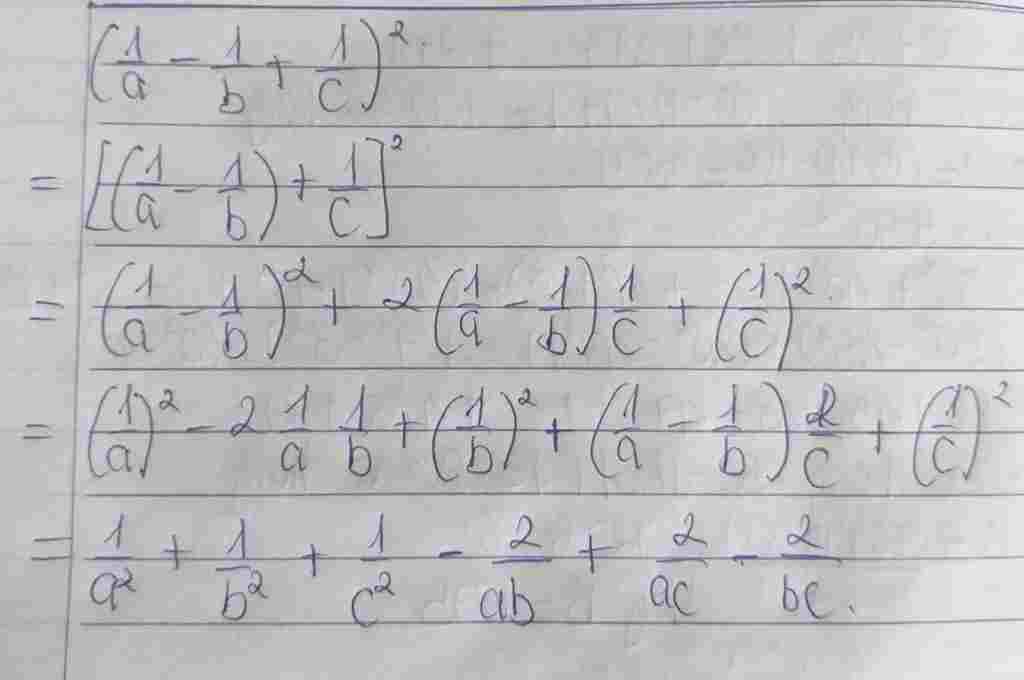 (1/a - 1/b + 1/c)².
= [(1/a - 1/b) + 1/c]²
= (1/a - 1/b)² + 2(1/a - 1/b) 1/c + (1/c)².
= (1/a)² - 2 1/a 1/b + (1/b)² + (1/a - 1/b) 2/c + (1/c)²
= 1/a² + 1/b² + 1/c² - 2/ab + 2/ac - 2/bc.